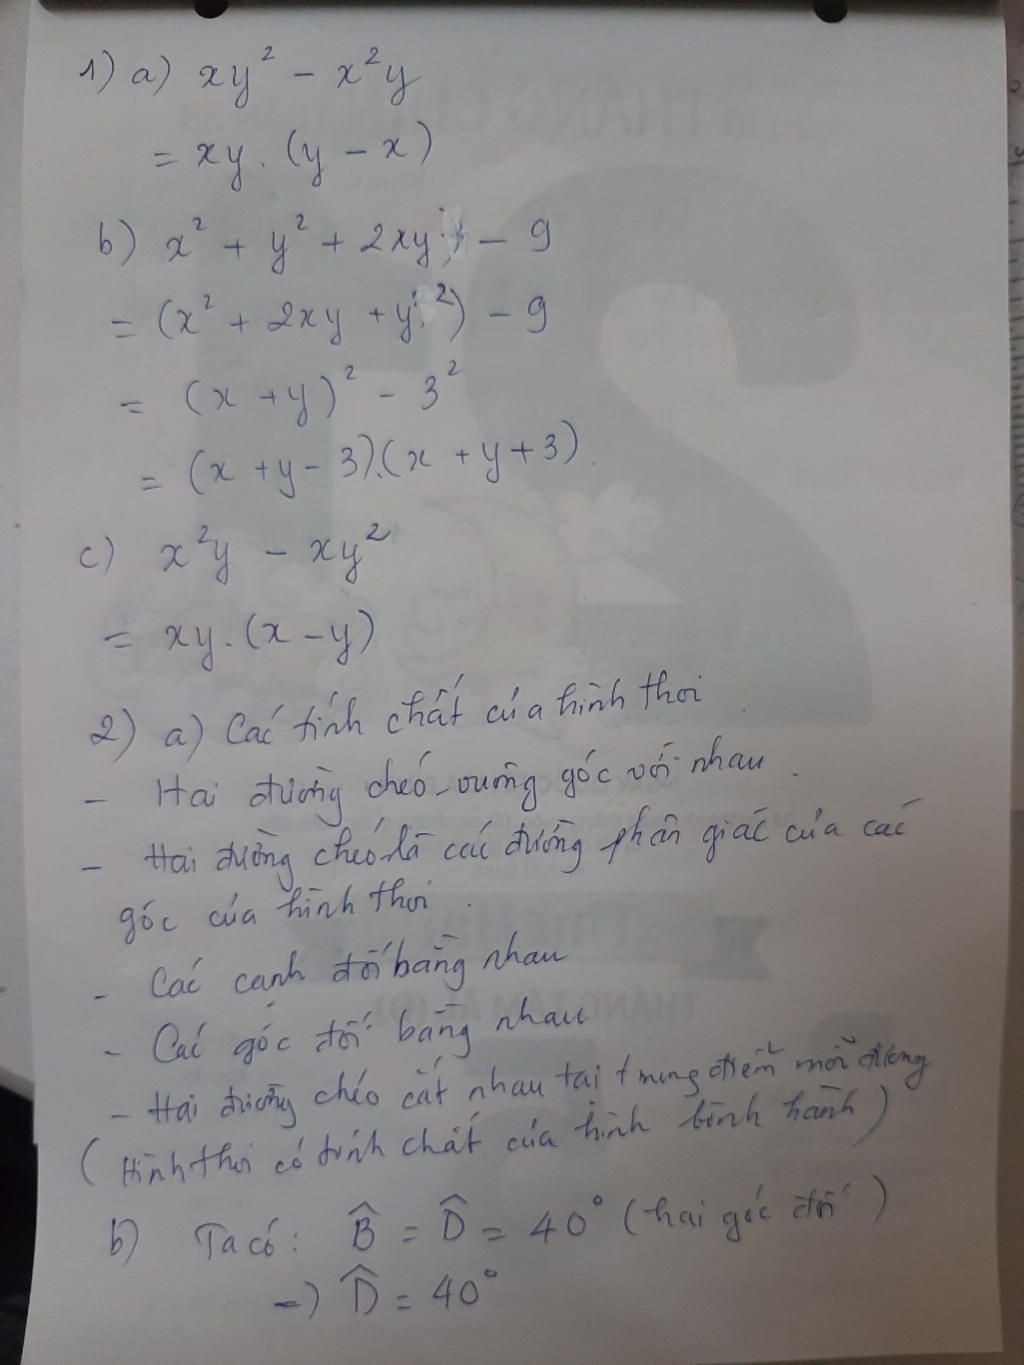 1) a) xy² - x²y
= xy. (y - x)
b) x² + y² + 2xy - 9
= (x² + 2xy + y²) - 9
= (x + y)² - 3²
= (x + y - 3).(x + y + 3).
c) x²y - xy²
= xy.(x - y)
2) a) Các tính chất của hình thoi
- Hai đường chéo vuông góc với nhau.
- Hai đường chéo là các đường phân giác của các
góc của hình thoi.
- Các cạnh đối bằng nhau
- Các góc đối bằng nhau
- Hai đường chéo cắt nhau tại trung điểm mỗi đường
(Hình thoi có tính chất của hình bình hành)
b) Ta có: B̂ = D̂ = 40° (hai góc đối)
=) D̂ = 40°